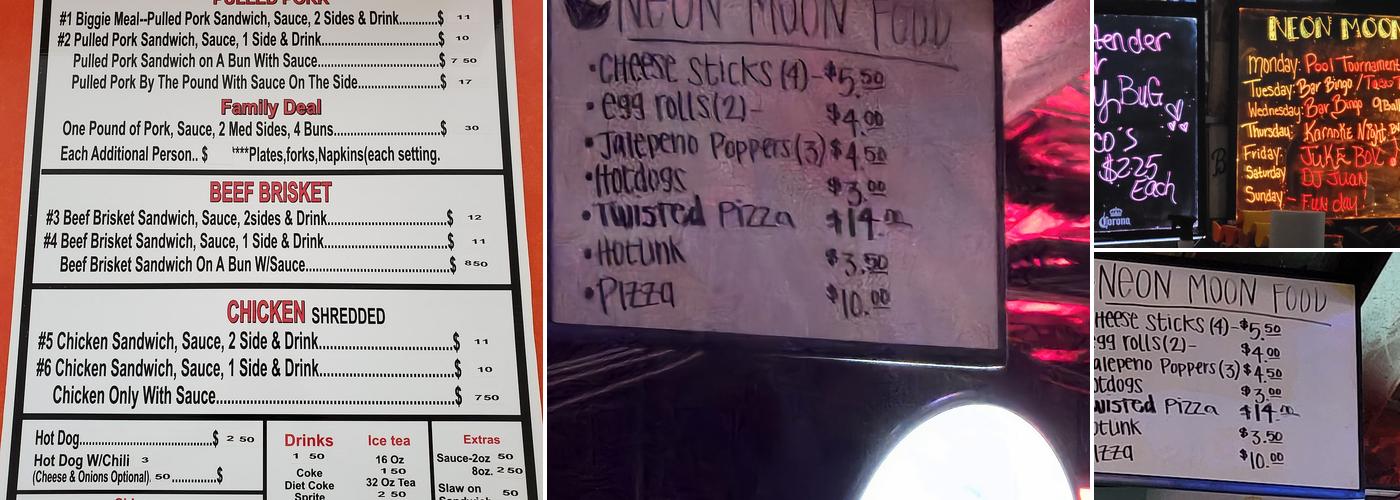 PULLED PORK
#1 Biggie Meal--Pulled Pork Sandwich, Sauce, 2 Sides & Drink............$ 11
#2 Pulled Pork Sandwich, Sauce, 1 Side & Drink............................$ 10
Pulled Pork Sandwich on A Bun With Sauce............................$ 7 50
Pulled Pork By The Pound With Sauce On The Side.....................$ 17
Family Deal
One Pound of Pork, Sauce, 2 Med Sides, 4 Buns..........................$ 30
Each Additional Person.. $ ****Plates,forks,Napkins(each setting.
BEEF BRISKET
#3 Beef Brisket Sandwich, Sauce, 2sides & Drink............................$ 12
#4 Beef Brisket Sandwich, Sauce, 1 Side & Drink............................$ 11
Beef Brisket Sandwich On A Bun W/Sauce................................$ 850
CHICKEN SHREDDED
#5 Chicken Sandwich, Sauce, 2 Side & Drink..............................$ 11
#6 Chicken Sandwich, Sauce, 1 Side & Drink..............................$ 10
Chicken Only With Sauce...................................................$ 750
Hot Dog..............................$ 2 50
Hot Dog W/Chili 3
(Cheese & Onions Optional). 50............$
Drinks
1 50
Coke
Diet Coke
Sprite
Ice tea
16 Oz
1 50
32 Oz Tea
2 50
Extras
Sauce-2oz 50
8oz. 2 50
Slaw on 50
Sandwich
NEON MOON FOOD
•CHEESE STICKS (4)-$5.50
•egg rolls(2)- $4.00
•Jalepeno Poppers(3) $4.50
•Hotdogs $3.00
•TWISTED Pizza $14.00
•HOTLINK $3.50
•PIZZA $10.00
tender
r
y BUG
co's
$2.25
Each
Corona
NEON MOON
Monday: Pool Tournament
Tuesday: Bar Bingo / Tacos
Wednesday: Bar Bingo 9Ball
Thursday: Karaoke Night
Friday: JUKE BOX
Saturday DJ JUAN
Sunday - FUN day!
NEON MOON FOOD
HEESE STICKS (4)-$5.50
gg rolls(2)- $4.00
alepeno Poppers(3) $4.50
otdogs $3.00
WISTED Pizza $14.00
OTLINK $3.50
IZZA $10.00